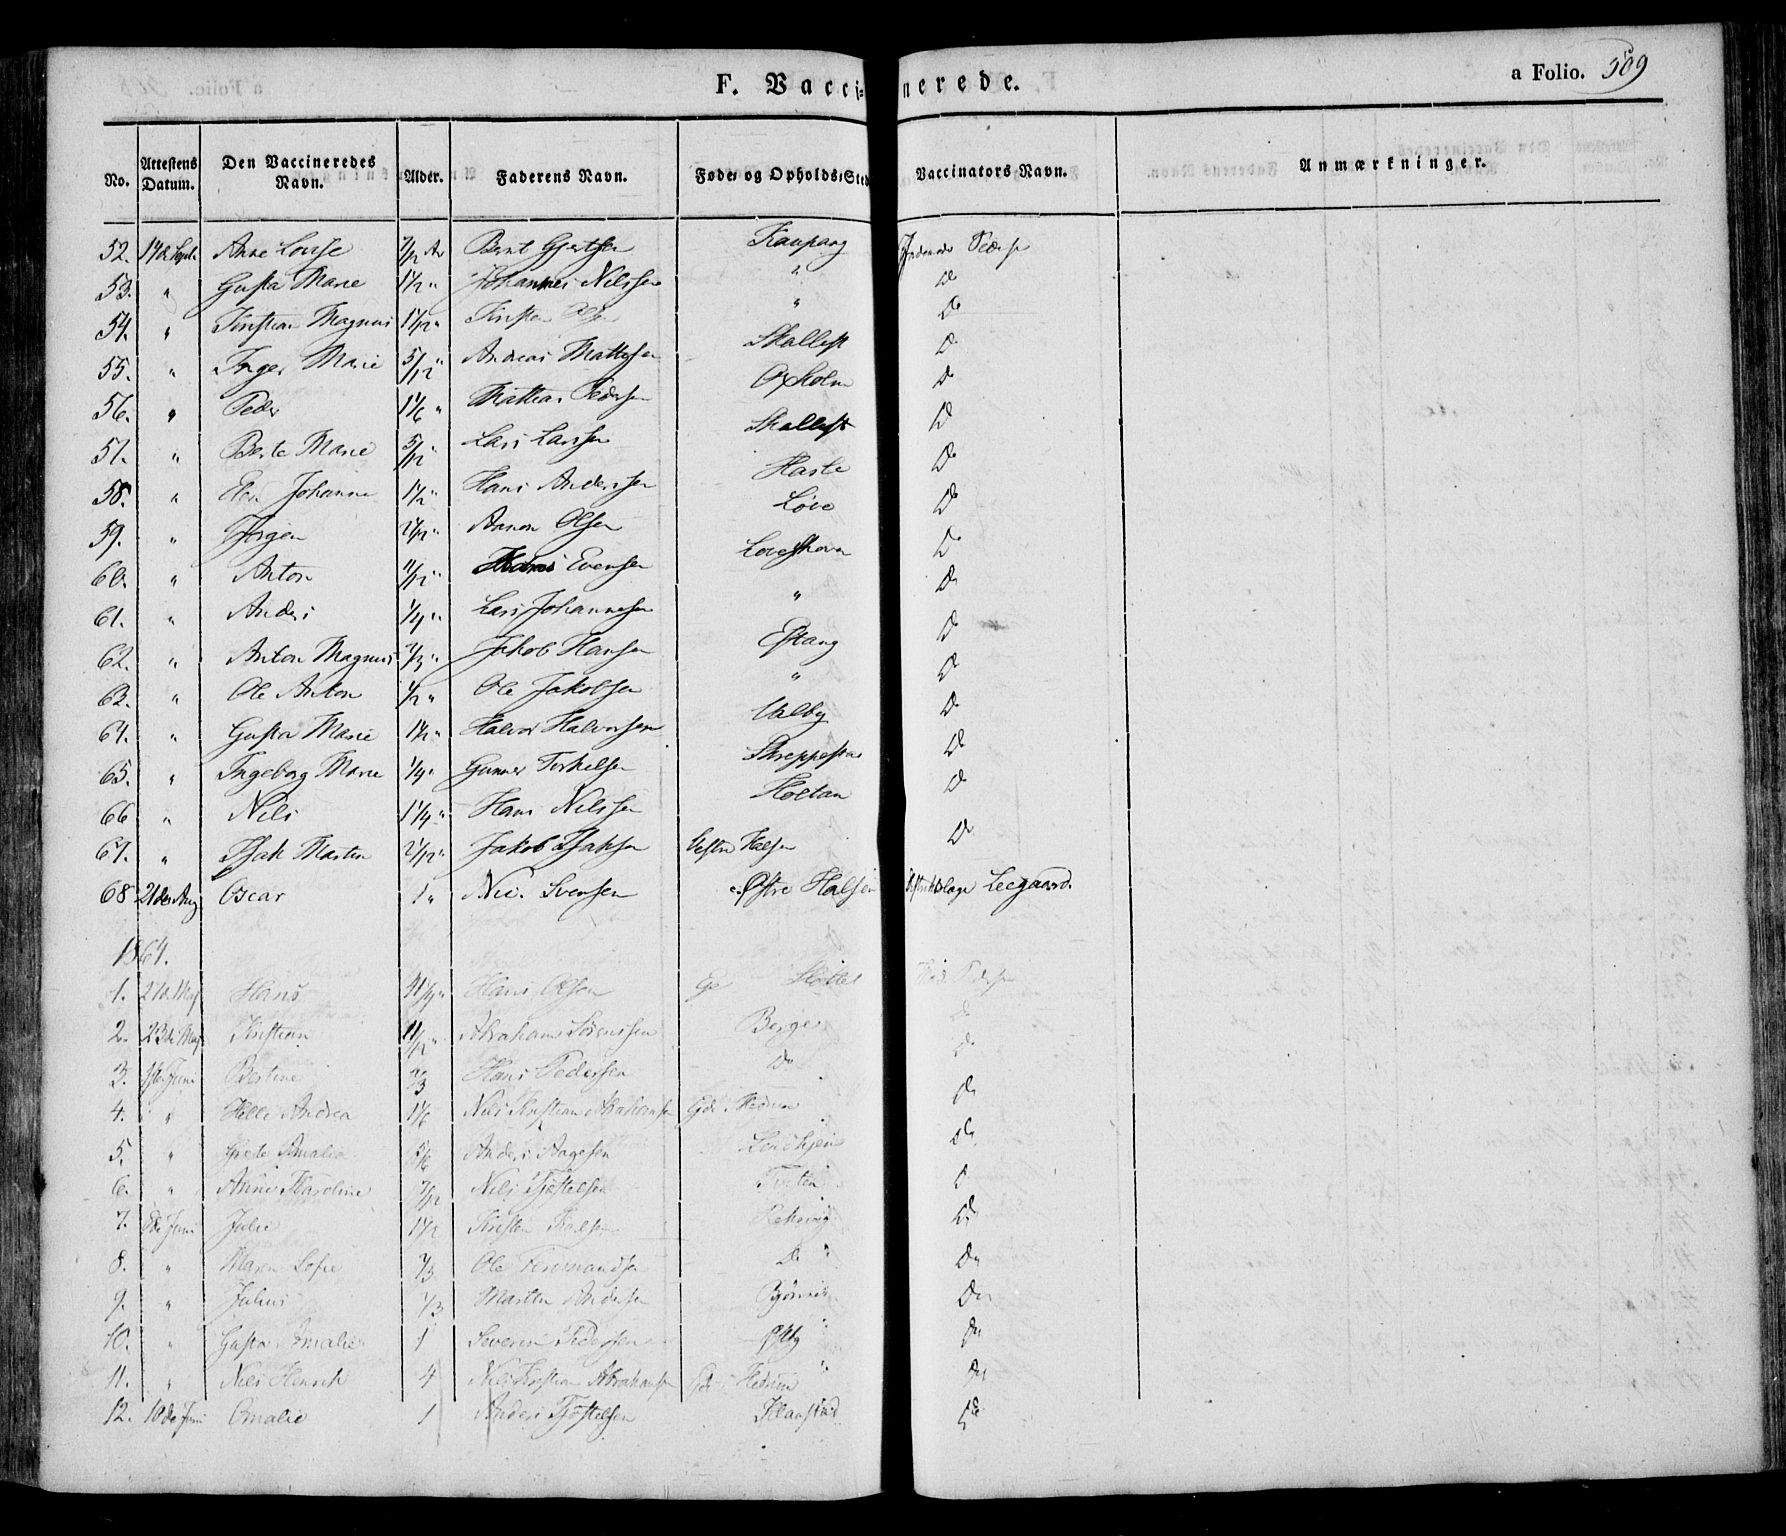 F. Vaccinerede.
a Folio. 509
No. Attestens Datum. Den Vaccineredes Navn. Alder. Faderens Navn. Føde- og Opholds-Sted Vaccinators Navn. Anmærkninger.
52. 14de Septr Anne Lovise 7/12 Ar Bernt Gjertsen Kaupang Peders
53. " Gusta Marie 1 1/2 " Johannes Nilssen " Do
54. " Kristian Magnus 1 1/12 " Kristen Olsen " Do
55. " Inger Marie 5/12 " Andreas Mathsen Skallest Do
56. " Peder 1 1/6 " Mathias Pedersen Oxholm Do
57. " Berte Marie 5/12 Lars Larssen Skallest Do
58. " Johanne 1 1/2 " Hans Anderssen Hasle Do
59. " Jørgen Aanon Olsen Løve Do
60. " Anton 11/12 " Evensen Løveskoven Do
61. " Anders 1/4 " Lars Johannesen " Do
62. " Anton Magnus 2/3 " Jakob Hansen Østang Do
63. " Ole Anton 1/2 " Ole Jakobsen " Do
64. " Gusta Marie 1 1/2 " Halvor Halvorsen Valby Do
65. " Ingeborg Marie 1/4 " Gunner Torkelsen Skreppesta Do
66 " Nils 1 1/4 " Hans Nilssen Holtan Do
67. " Isak Martin Jakob Isaksen Vestre Halsen Do
68 21de Aug Oscar 1 " Nic. Svensen Østre Halsen Leegaard.
1864.
1. 21de Maj Hans Hans Olsen
2. 23de Maj Kristian 11/12 " Abraham Sørenssen Berge Do
3. 1ste Juni Bertine 2/3 Hans Pedersen Do Do
4. " Helle Andrea 1 1/6 Nils Kristian Abrahamsen Gde Hedrum Do
5. " Grete Amalie 5/6 Anders Aagesen Do
6. " Anne Karoline 7/12 Nils Kjøstelsen Tveten D
7. 8de Juni Julie 1 1/2 Kristen Do
8. " Maren Sofie 2/3 Ole Do " Do
9. " Julius 1/3 Martin Andersen Bjønnes Do
10. " Gusta Amalie 1 Severin Pedersen " Do
11. " Nils Henrik 4 Nils Kristian Abrahamsen Gde Hedrum " Do
12. 10de Juni Amalie 1 Anders Kjøstelsen Klaastad Do